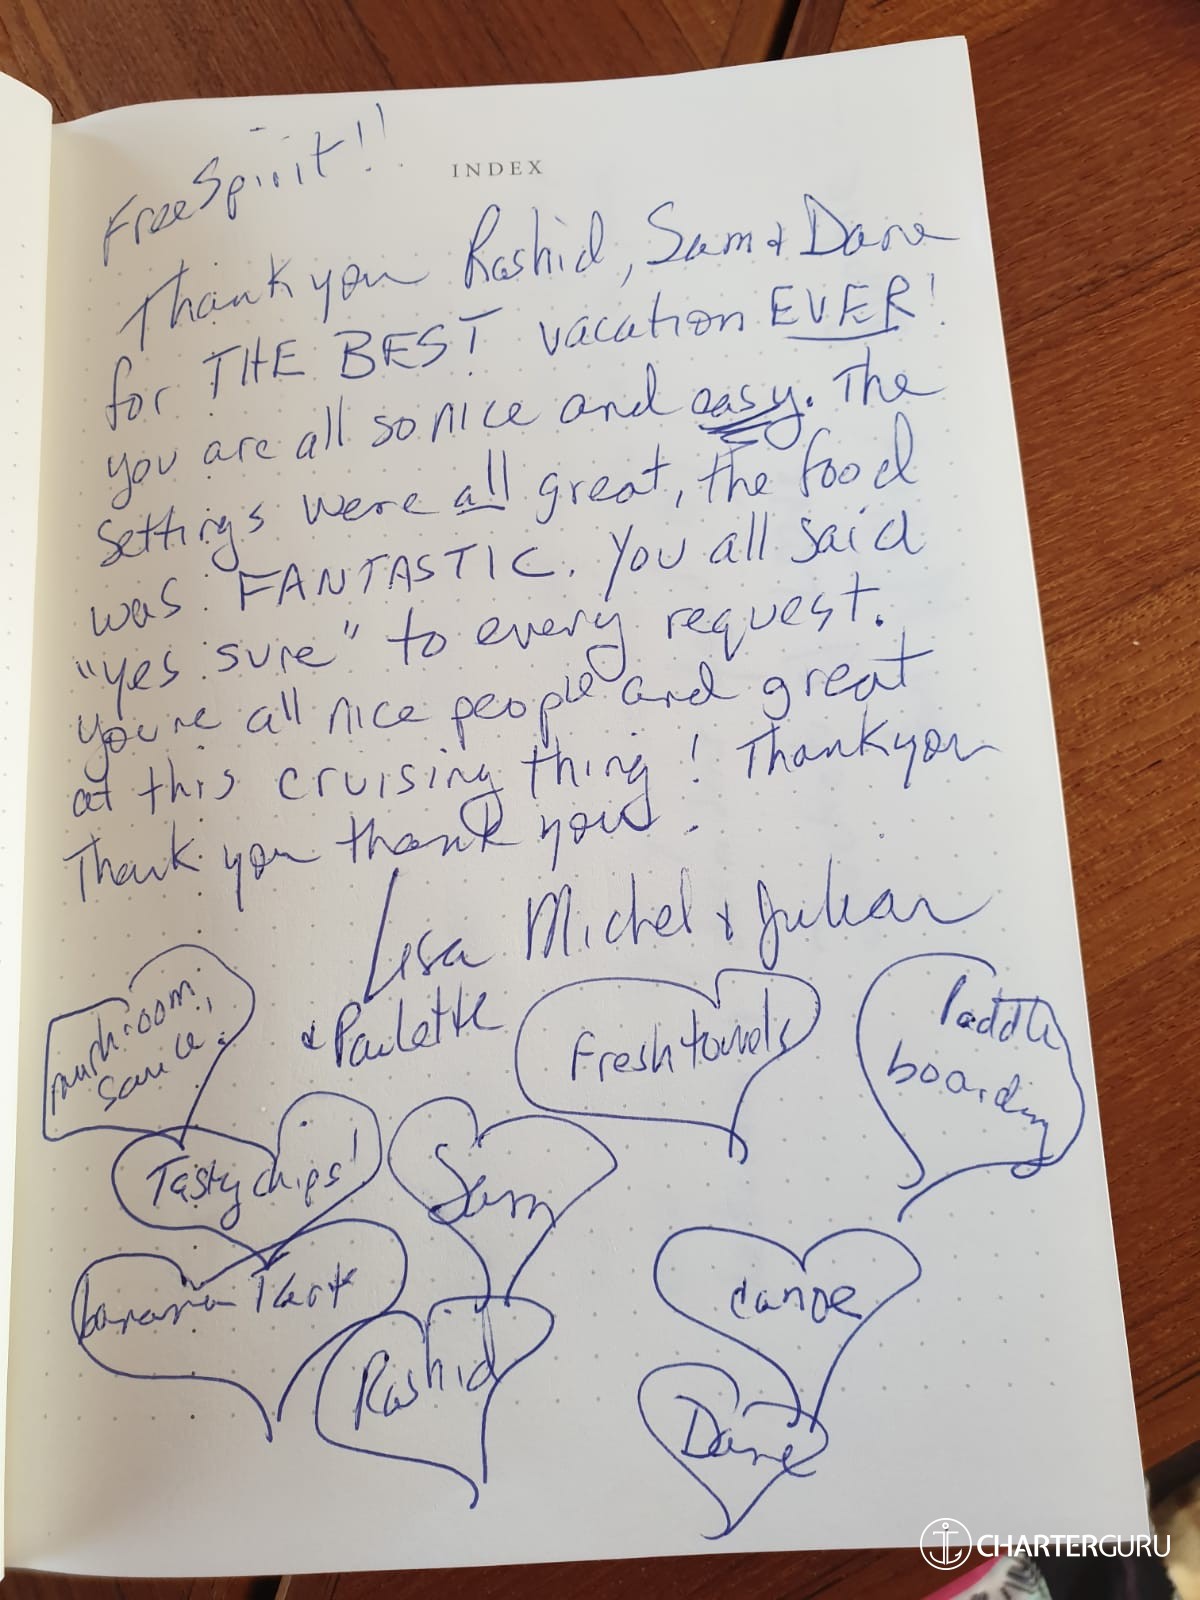 FreeSpirit!!
INDEX
Thank you Rashid, Sam + Dane
for THE BEST vacation EVER!
you are all so nice and easy. The
settings were all great, the food
was FANTASTIC. You all said
"yes sure" to every request.
You're all nice people and great
at this cruising thing! Thank you
Thank you thank you.
Lisa Michel + Julian
+ Paulette
mushroom
sauce
Fresh towels
Paddle
boarding
Tasty chips!
Sam
banana Tart
canoe
Rashid
Dane
CHARTERGURU